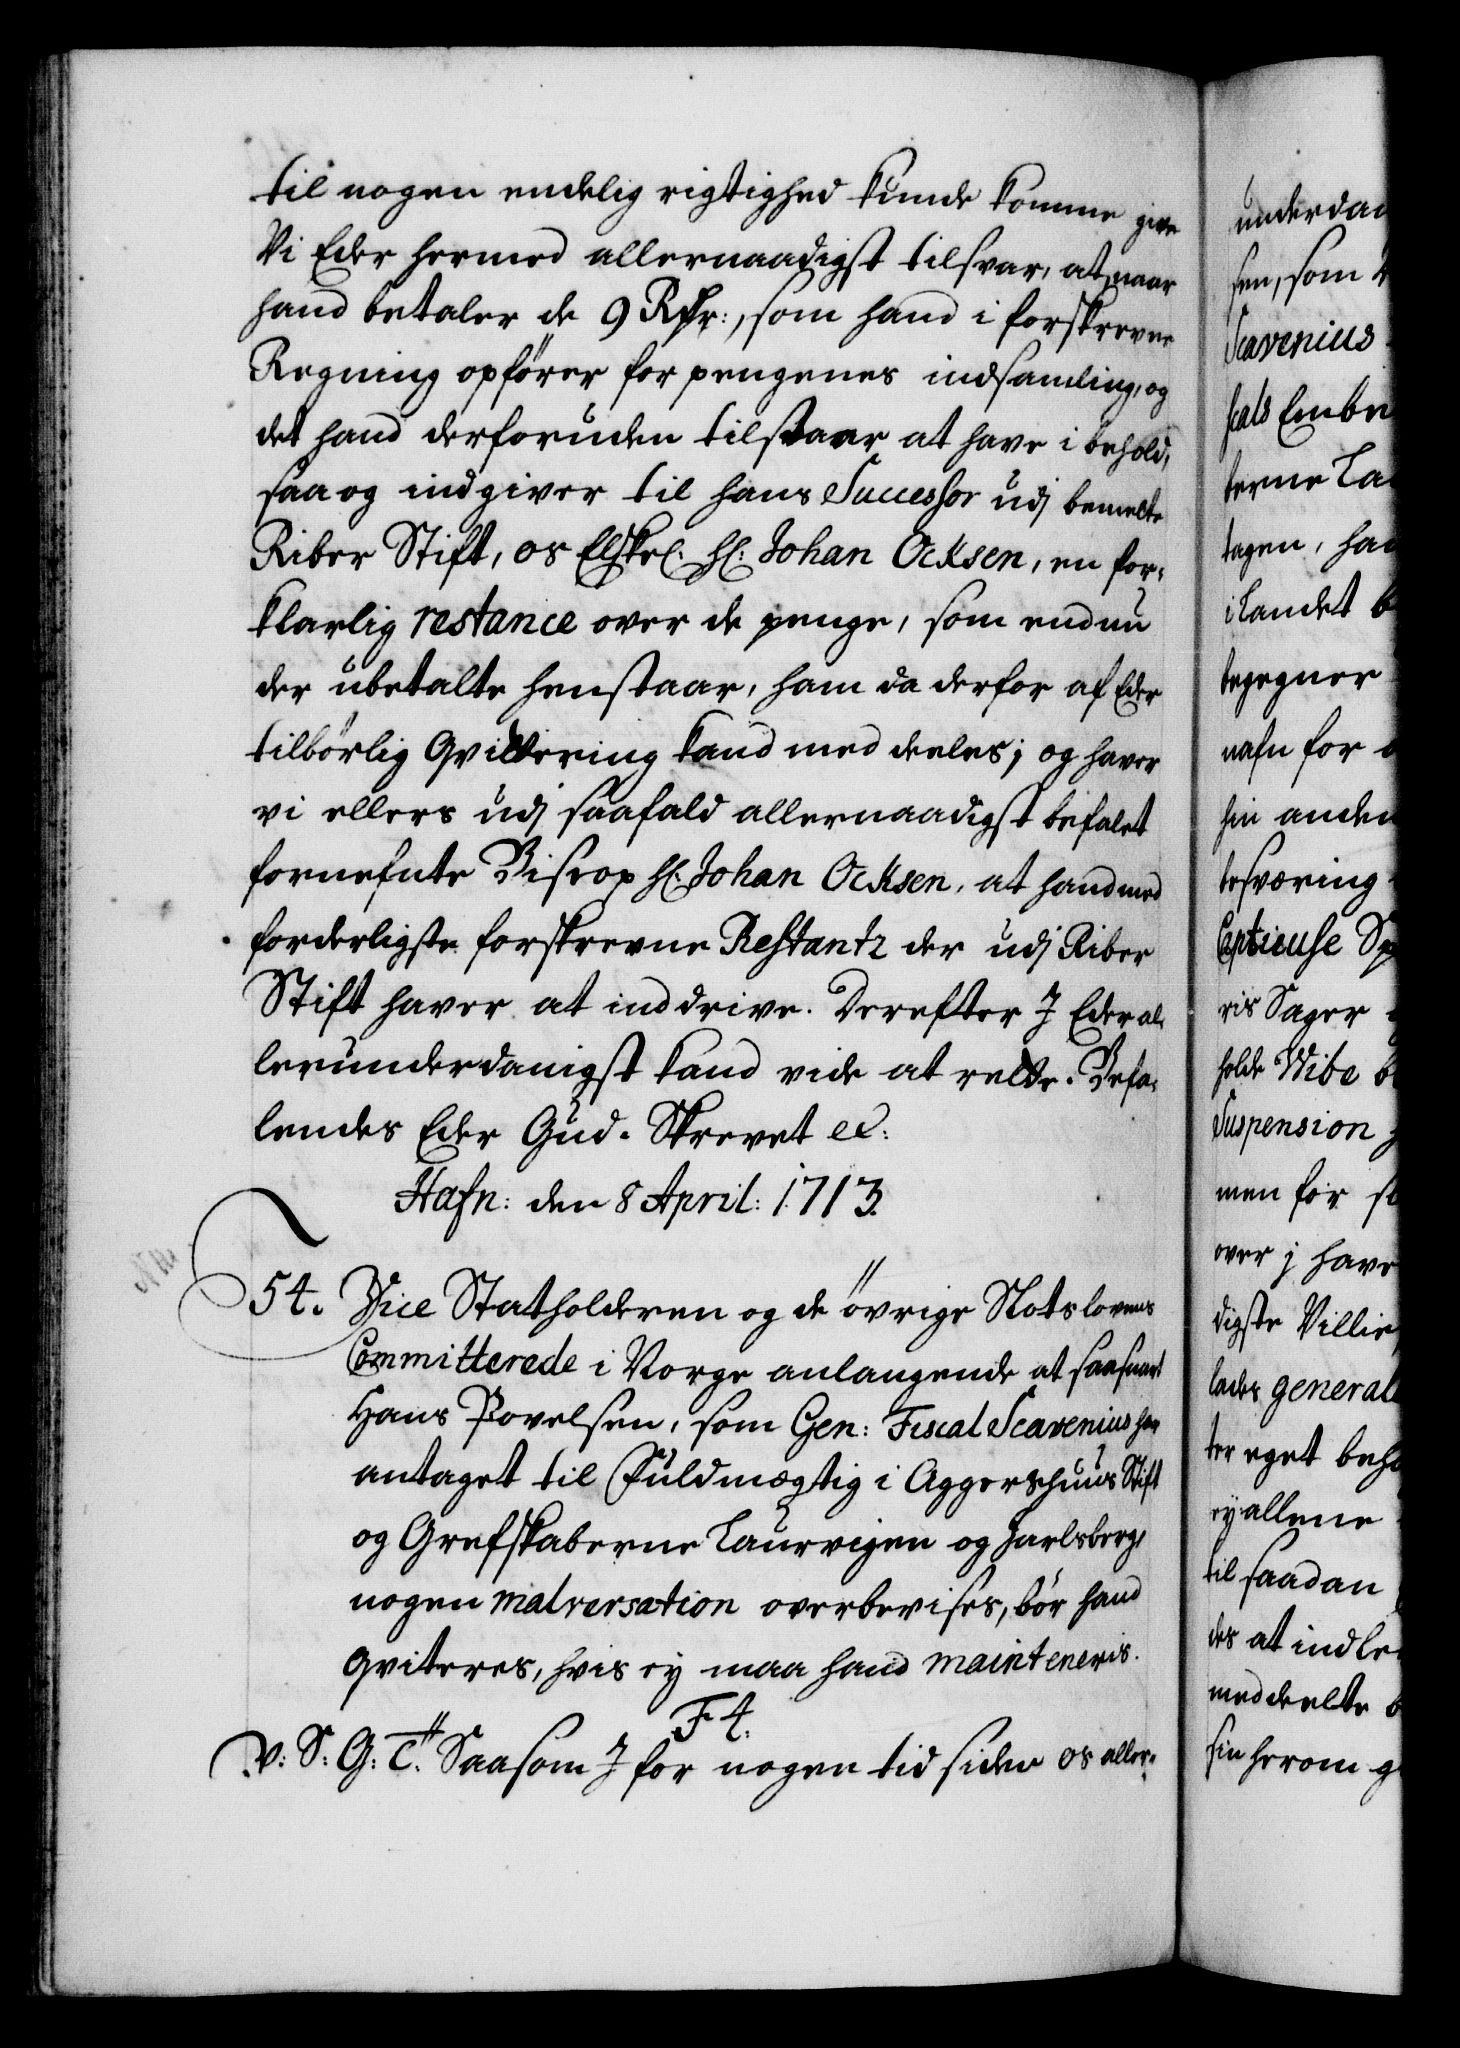 til nogen endelig rigtighed kunde komme give
Vi Eder hermed allernaadigst tilsvar, at, naar
hand betaler de 9 Rdr:, som hand i forskrevne
Regning opfører for pengenes indsamling, og
det hand derforuden tilstaar at have i behold,
saa og indgiver til hans Successor udj bemelte
Riber Stift, os Elskel. Hl: Johan Ocksen, en for-
klarlig restance over de penge, som endnu
der ubetalte henstaar, ham da derfor af Eder
tilbörlig Qvittering kand med deeles; og haver
vi ellers udj saafald allernaadigst befalet
fornefnte Biscop Hl: Johan Ocksen, at hand med
forderligste forskrevne Restantz der udj Riber
Stift haver at inddrive. Derefter J Eder al-
lerunderdanigst kand vide at rette. Befa-
lendes Eder Gud. Skrevet ec:
Hafn: den 8 April: 1713.
54. Vice Statholderen og de övrige Slotslovens
Committerede i Norge anlangende at saasnart
Hans Povelsen, som Gen: Fiscal Scavenius har
antaget til Fuldmægtig i Aggershuus Stift
og Grefskaberne Laurvigen og Jarlsberg,
nogen malversation overbevises, bör hand
qviteres, hvis ey maa hand mainteneris.
F 4.
V: S: G: T: Saasom J for nogen tid siden os aller-
underdan
sen, som
Scavenius
scals Embe
terne La
tagen, ha
i Landet b
begegner
nafn for
sin anden
besværing
Captieuse Sp
ris Sager
holde Wibe b
Suspension
men for
over j have
digste Villie
lades general
ter eget beh
ey allene
til saadan
des at indle
meddeelte b
sin herom g